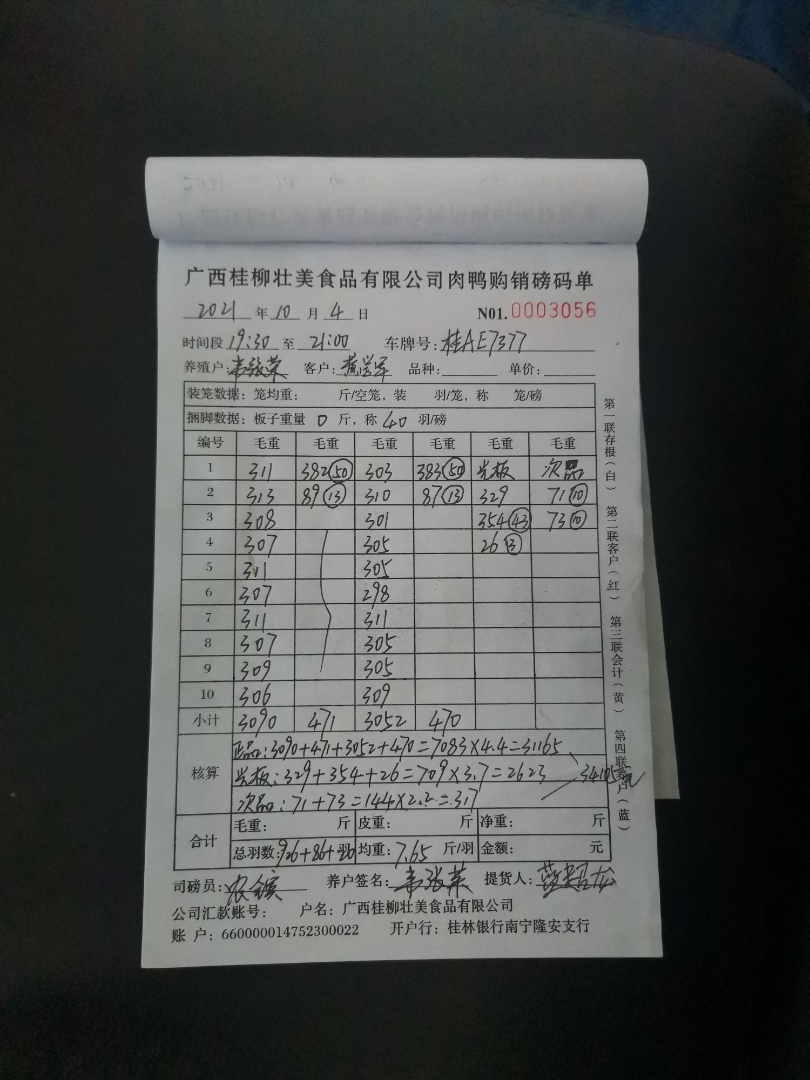 广西桂柳壮美食品有限公司肉鸭购销磅码单
2021 年 10 月 4 日 N01.0003056
时间段 19:30 至 21:00 车牌号:桂AE7377
养殖户:韦张荣 客户:黄学军 品种: 单价:
装笼数据:笼均重: 斤/空笼,装 羽/笼,称 笼/磅
捆脚数据:板子重量 0 斤,称 40 羽/磅
编号 毛重 毛重 毛重 毛重 毛重 毛重
1 311 382(50) 303 383(50) 光板 次品
2 313 89(13) 310 87(13) 329 71(10)
3 308 301 354(43) 73(10)
4 307 305 26(3)
5 311 305
6 307 298
7 311 311
8 307 305
9 309 305
10 306 309
小计 3090 471 3052 470
核算
正品:3090+471+3052+470=7083×4.4=31165
光板:329+354+26=709×3.7=2623
次品:71+73=144×2.2=317
34105元
合计
毛重: 斤 皮重: 斤 净重: 斤
总羽数:926+86+20 均重:7.65 斤/羽 金额: 元
司磅员: 养户签名:韦张荣 提货人:
公司汇款账号: 户名:广西桂柳壮美食品有限公司
账 户:660000014752300022 开户行:桂林银行南宁隆安支行
第一联存根(白) 第二联客户(红) 第三联会计(黄) 第四联养户(蓝)